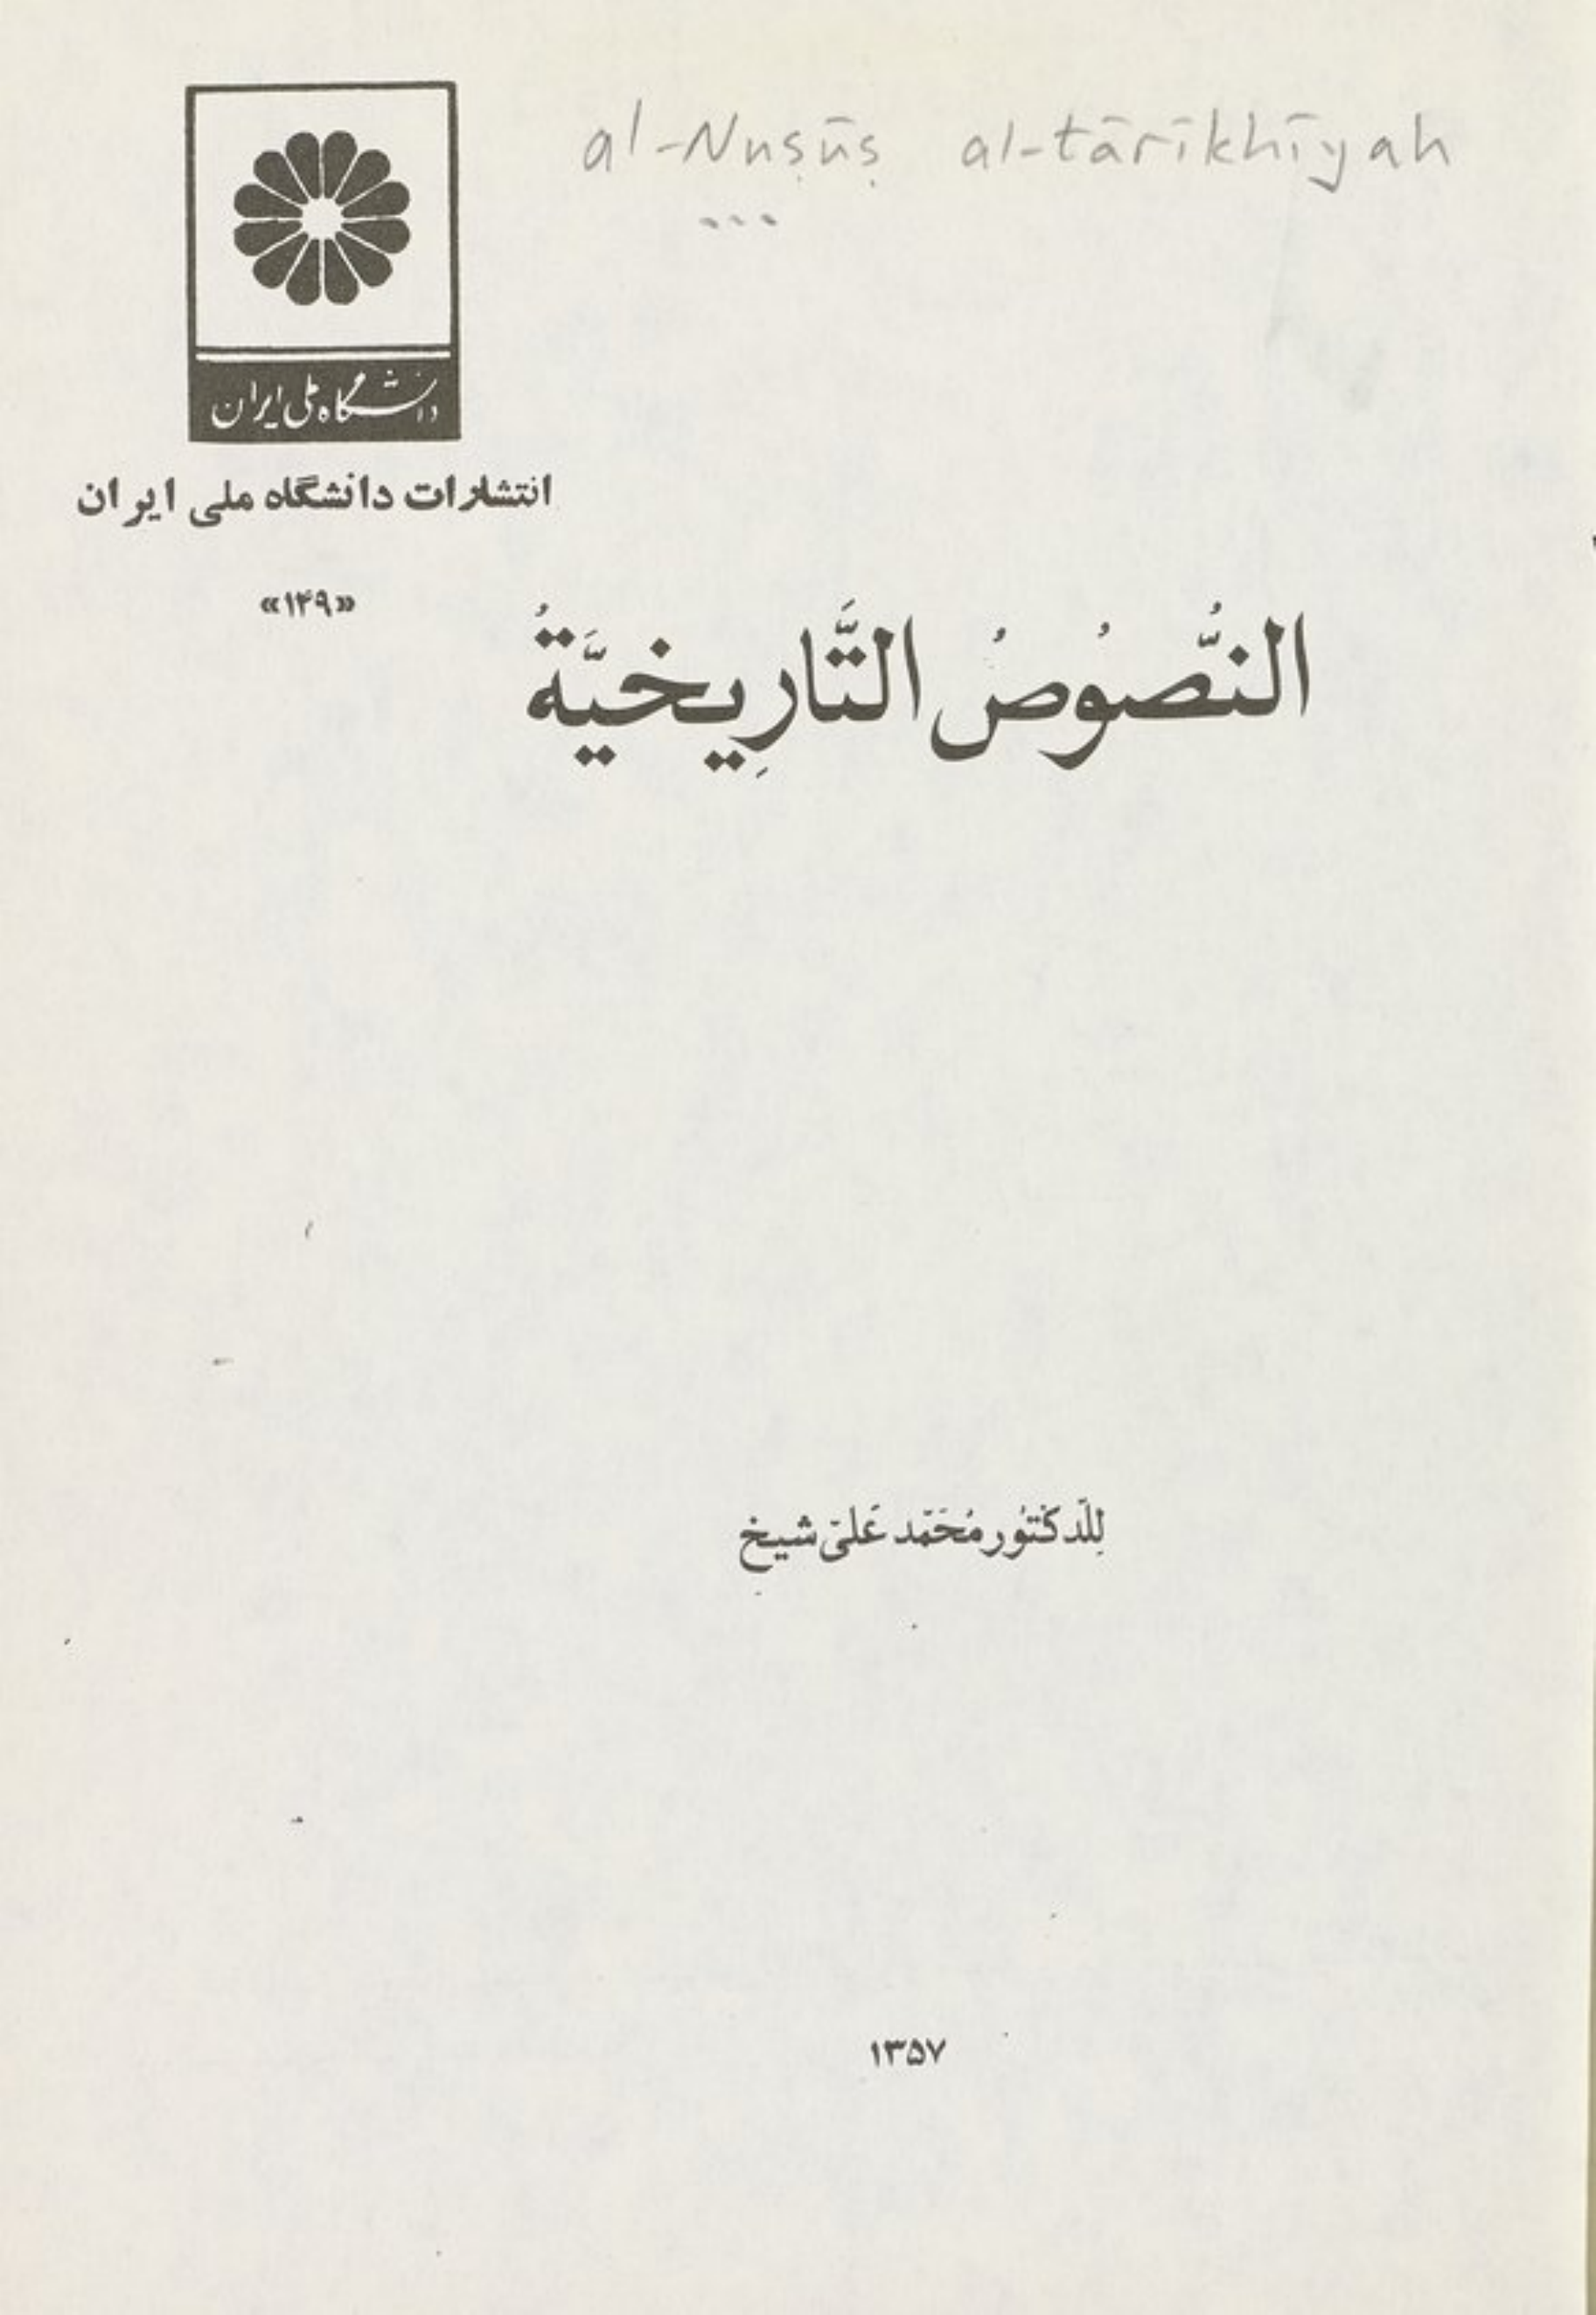 al-Nuṣūṣ al-tārīkhīyah
...
دانشگاه ملی ایران
انتشارات دانشگاه ملی ایران
«۱۴۹»
النُّصُوصُ التَّارِيخيَّةُ
لِلدّكتُور مُحَمّد عَلىّ شيخ
۱۳۵۷